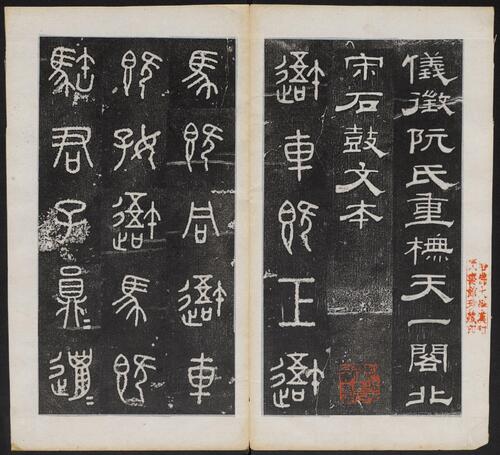 儀徵阮氏重橅天一閣北
宋石鼓文本
䢒車既工䢒
馬既同䢒車
既好䢒馬既
君子員邋